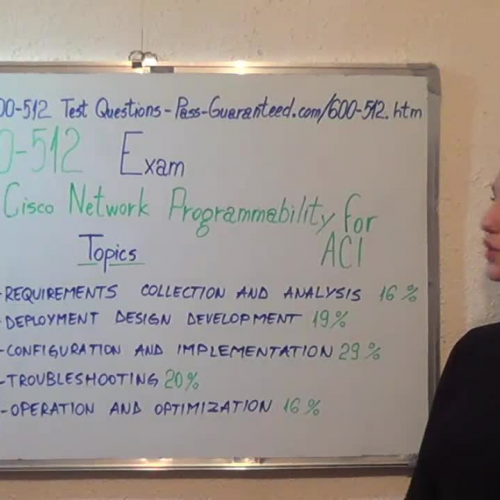 00-512 Test Questions - Pass-Guaranteed.com/600-512.htm
0-512 Exam
Cisco Network Programmability for
ACI
Topics
-REQUIREMENTS COLLECTION AND ANALYSIS 16%
-DEPLOYMENT DESIGN DEVELOPMENT 19%
-CONFIGURATION AND IMPLEMENTATION 29%
-TROUBLESHOOTING 20%
-OPERATION AND OPTIMIZATION 16%